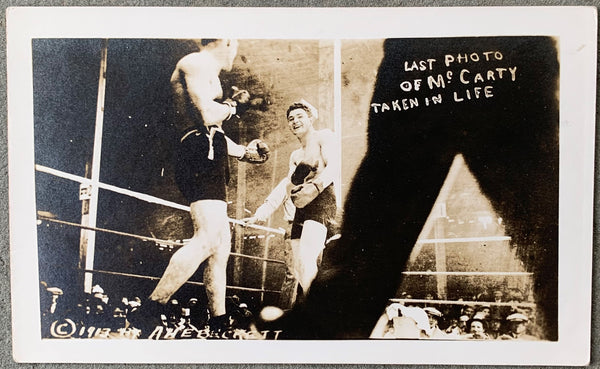 LAST PHOTO
OF Mc CARTY
TAKEN IN LIFE
© 1913